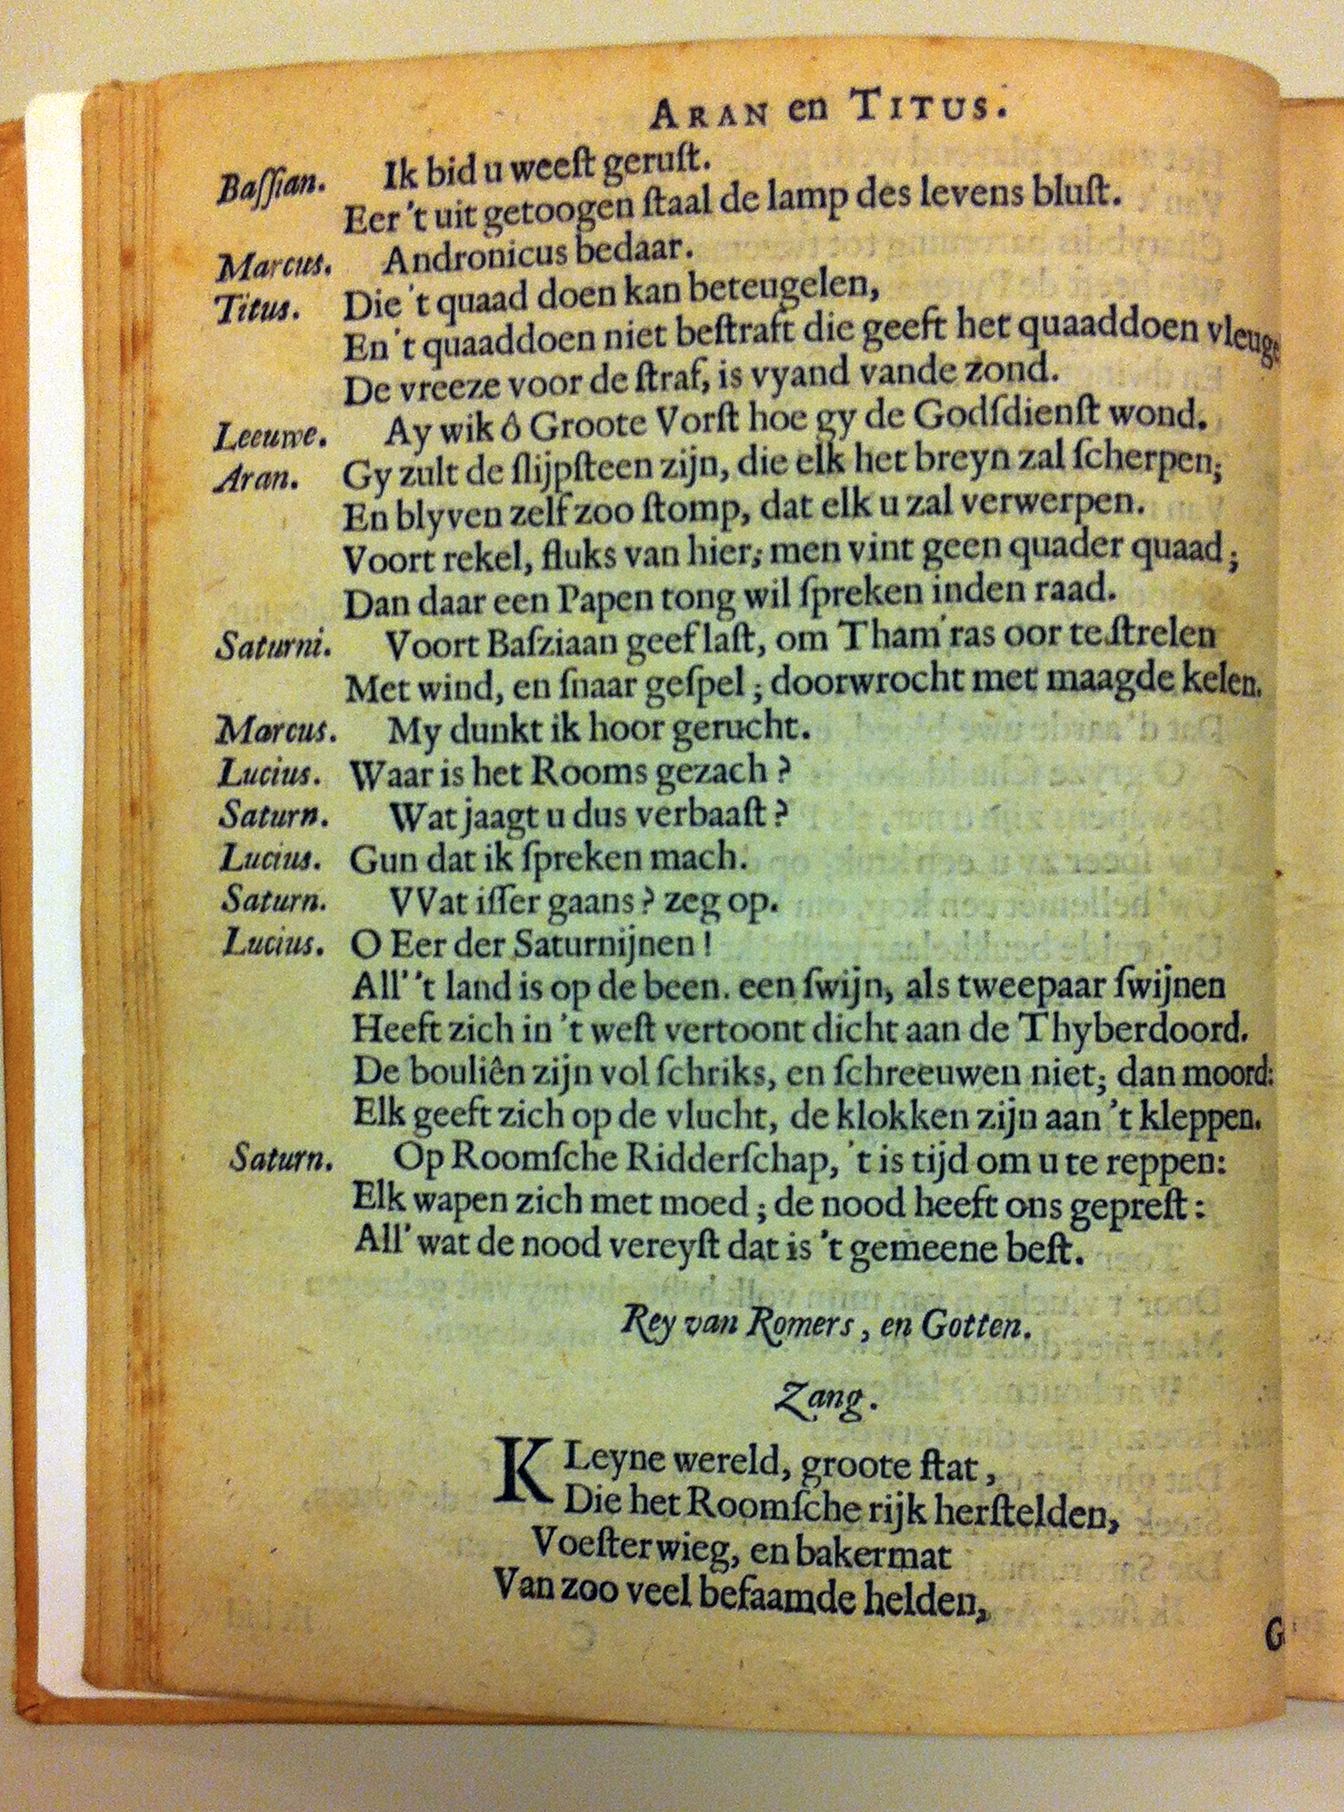 ARAN en TITUS.
Baſſian. Ik bid u weeſt geruſt.
Eer 't uit getoogen ſtaal de lamp des levens bluſt.
Marcus. Andronicus bedaar.
Titus. Die 't quaad doen kan beteugelen,
En 't quaaddoen niet beſtraft die geeft het quaaddoen
De vreeze voor de ſtraf, is vyand vande zond.
Leeuwe. Ay wik ô Groote Vorſt hoe gy de Godſdienſt wond.
Aran. Gy zult de ſlijpſteen zijn, die elk het breyn zal ſcherpen;
En blyven zelf zoo ſtomp, dat elk u zal verwerpen.
Voort rekel, fluks van hier; men vint geen quader quaad;
Dan daar een Papen tong wil ſpreken inden raad.
Saturni. Voort Baſziaan geef laſt, om Tham'ras oor te ſtrelen
Met wind, en ſnaar geſpel; doorwrocht met maagde kelen.
Marcus. My dunkt ik hoor gerucht.
Lucius. Waar is het Rooms gezach?
Saturn. Wat jaagt u dus verbaaſt?
Lucius. Gun dat ik ſpreken mach.
Saturn. VVat iſſer gaans? zeg op.
Lucius. O Eer der Saturnijnen!
All' 't land is op de been. een ſwijn, als tweepaar ſwijnen
Heeft zich in 't weſt vertoont dicht aan de Thyberdoord.
De bouliên zijn vol ſchriks, en ſchreeuwen niet; dan moord:
Elk geeft zich op de vlucht, de klokken zijn aan 't kleppen.
Saturn. Op Roomſche Ridderſchap, 't is tijd om u te reppen:
Elk wapen zich met moed; de nood heeft ons gepreſt:
All' wat de nood vereyſt dat is 't gemeene beſt.
Rey van Romers, en Gotten.
Zang.
KLeyne wereld, groote ſtat,
Die het Roomſche rijk herſtelden,
Voeſterwieg, en bakermat
Van zoo veel befaamde helden,